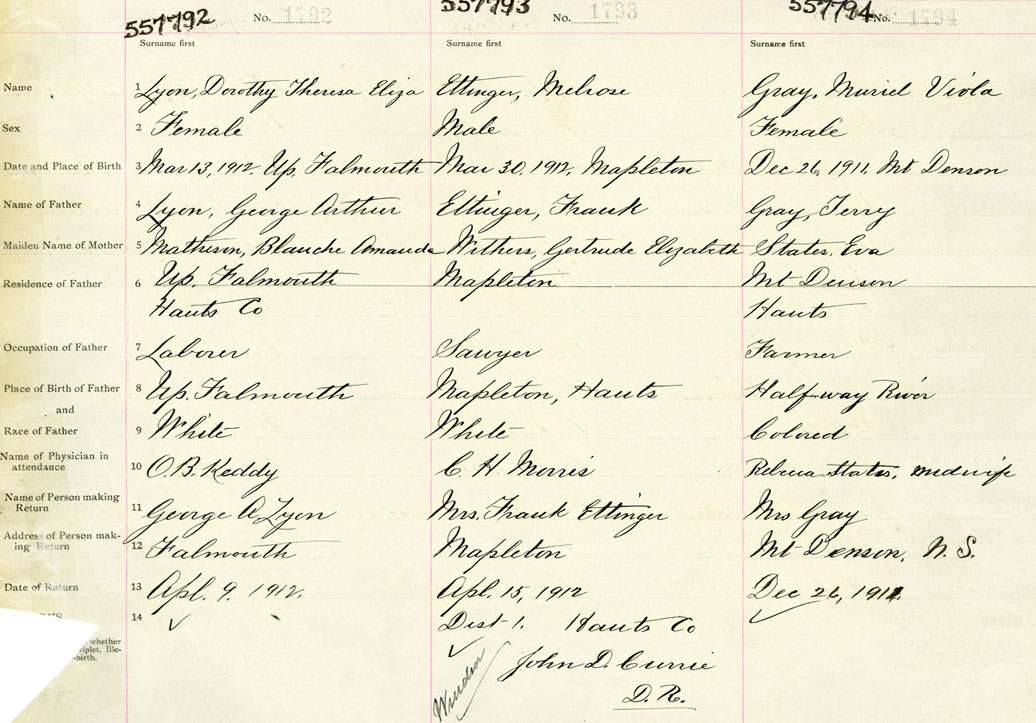 557792 No. 1792 557793 No. 1793 557794 No. 1794
Surname first Surname first Surname first
Name 1 Lyon, Dorothy Theresa Eliza Ettinger, Melrose Gray, Muriel Viola
Sex 2 Female Male Female
Date and Place of Birth 3 Mar 13, 1912. Up. Falmouth Mar 30, 1912. Mapleton Dec 26, 1911, Mt Denson
Name of Father 4 Lyon, George Arthur Ettinger, Frank Gray, Terry
Maiden Name of Mother 5 Matheson, Blanche Amanda Withers, Gertrude Elizabeth States, Eva
Residence of Father 6 Up. Falmouth Mapleton Mt Denson
Hants Co Hants
Occupation of Father 7 Laborer Sawyer Farmer
Place of Birth of Father 8 Up. Falmouth Mapleton, Hants Half-way River
and
Race of Father 9 White White Colored
Name of Physician in
attendance 10 O. B. Keddy C. H Morris Rebecca States, midwife
Name of Person making
Return 11 George A Lyon Mrs. Frank Ettinger Mrs Gray
Address of Person mak-
ing Return 12 Falmouth Mapleton Mt Denson, N. S.
Date of Return 13 Apl. 9. 1912. Apl. 15, 1912 Dec 26, 1911.
14 Dist 1. Hants Co
whether
riplet, Ille-
-birth.
John D. Currie
D. R.
Windsor